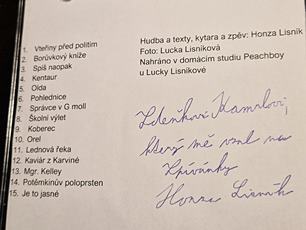 1. Vteřiny před politim
2. Borůvkový kníže
3. Spíš naopak
4. Kentaur
5. Olda
6. Pohlednice
7. Správce v G moll
8. Školní výlet
9. Koberec
10. Orel
11. Lednová řeka
12. Kaviár z Karviné
13. Mgr. Kelley
14. Potěmkinův poloprsten
15. Je to jasné
Hudba a texty, kytara a zpěv: Honza Lisník
Foto: Lucka Lisníková
Nahráno v domácím studiu Peachboy
u Lucky Lisníkové
Zdeňkovi Kamrlovi,
který mě vzal na
Zpívánky
Honza Lisník